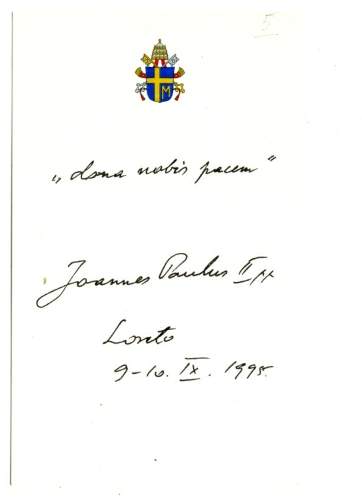 5
M
„dona nobis pacem”
Joannes Paulus II pp
Loreto
9-10. IX. 1995.